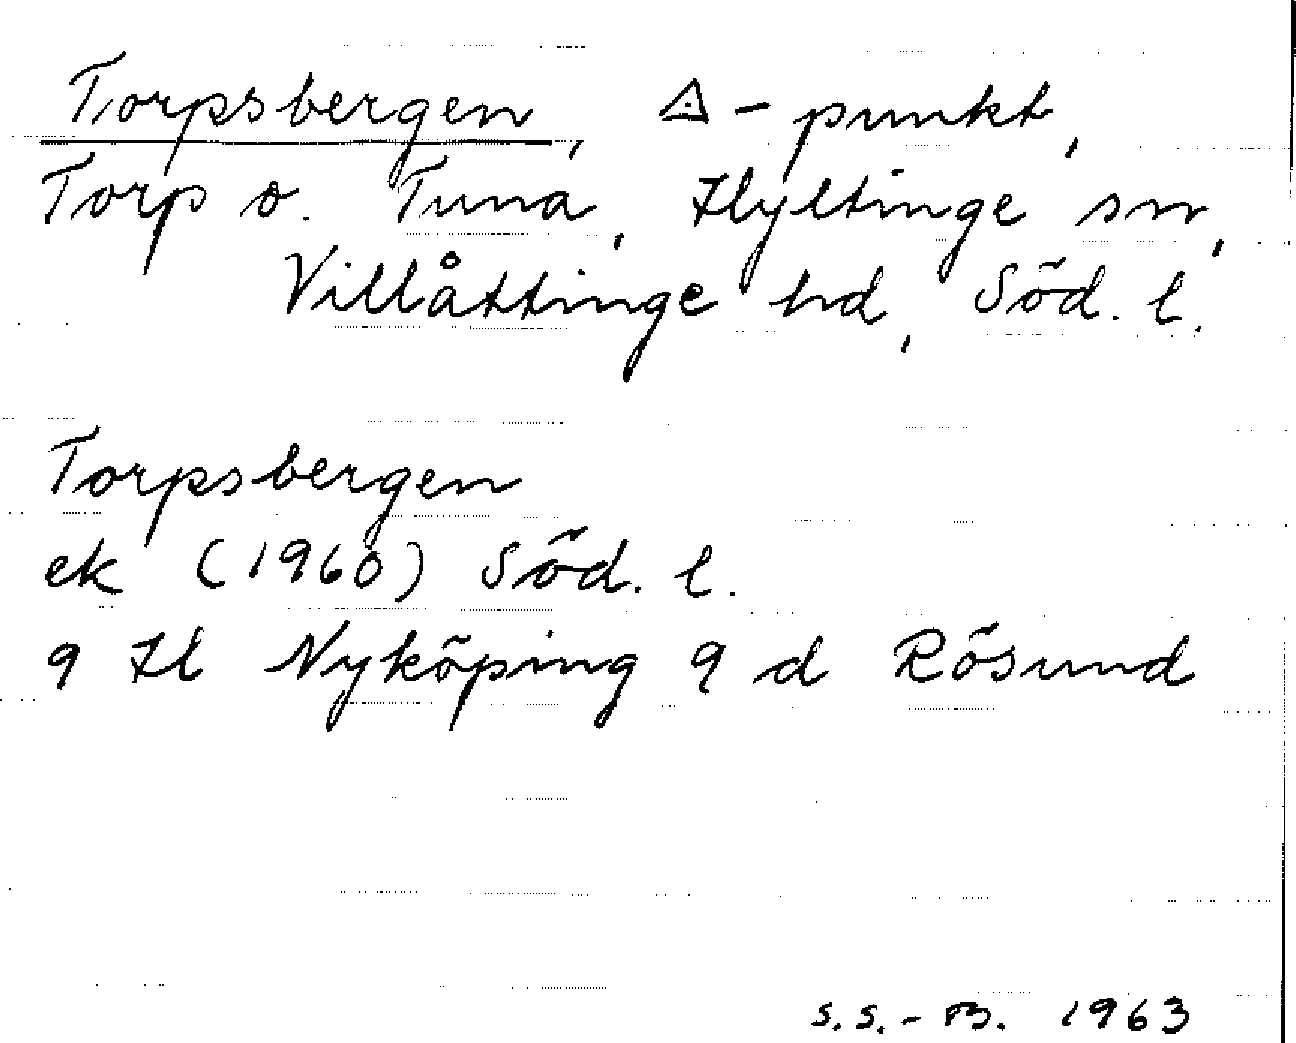 Torpsbergen, △-punkt,
Torp o. Tuna, Hyltinge sn,
Villåttinge hd, Söd. l.
Torpsbergen
ek (1960) Söd. l.
9 H Nyköping 9 d Rösund
S.S.-B. 1963